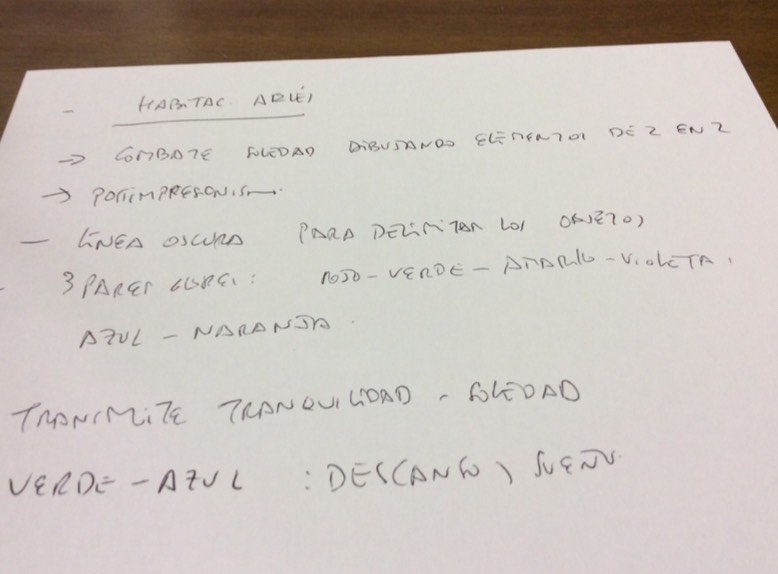 - HABITAC. ARLÉS
→ COMBATE SOLEDAD DIBUJANDO ELEMENTOS DE 2 EN 2
→ POSTIMPRESIONISM.
- LÍNEA OSCURA PARA DELIMITAR LOS OBJETOS
- 3 PARES COLORES: ROJO-VERDE-AMARILLO-VIOLETA.
AZUL - NARANJA.
TRANSMITE TRANQUILIDAD - SOLEDAD
VERDE-AZUL : DESCANSO, SUEÑO.